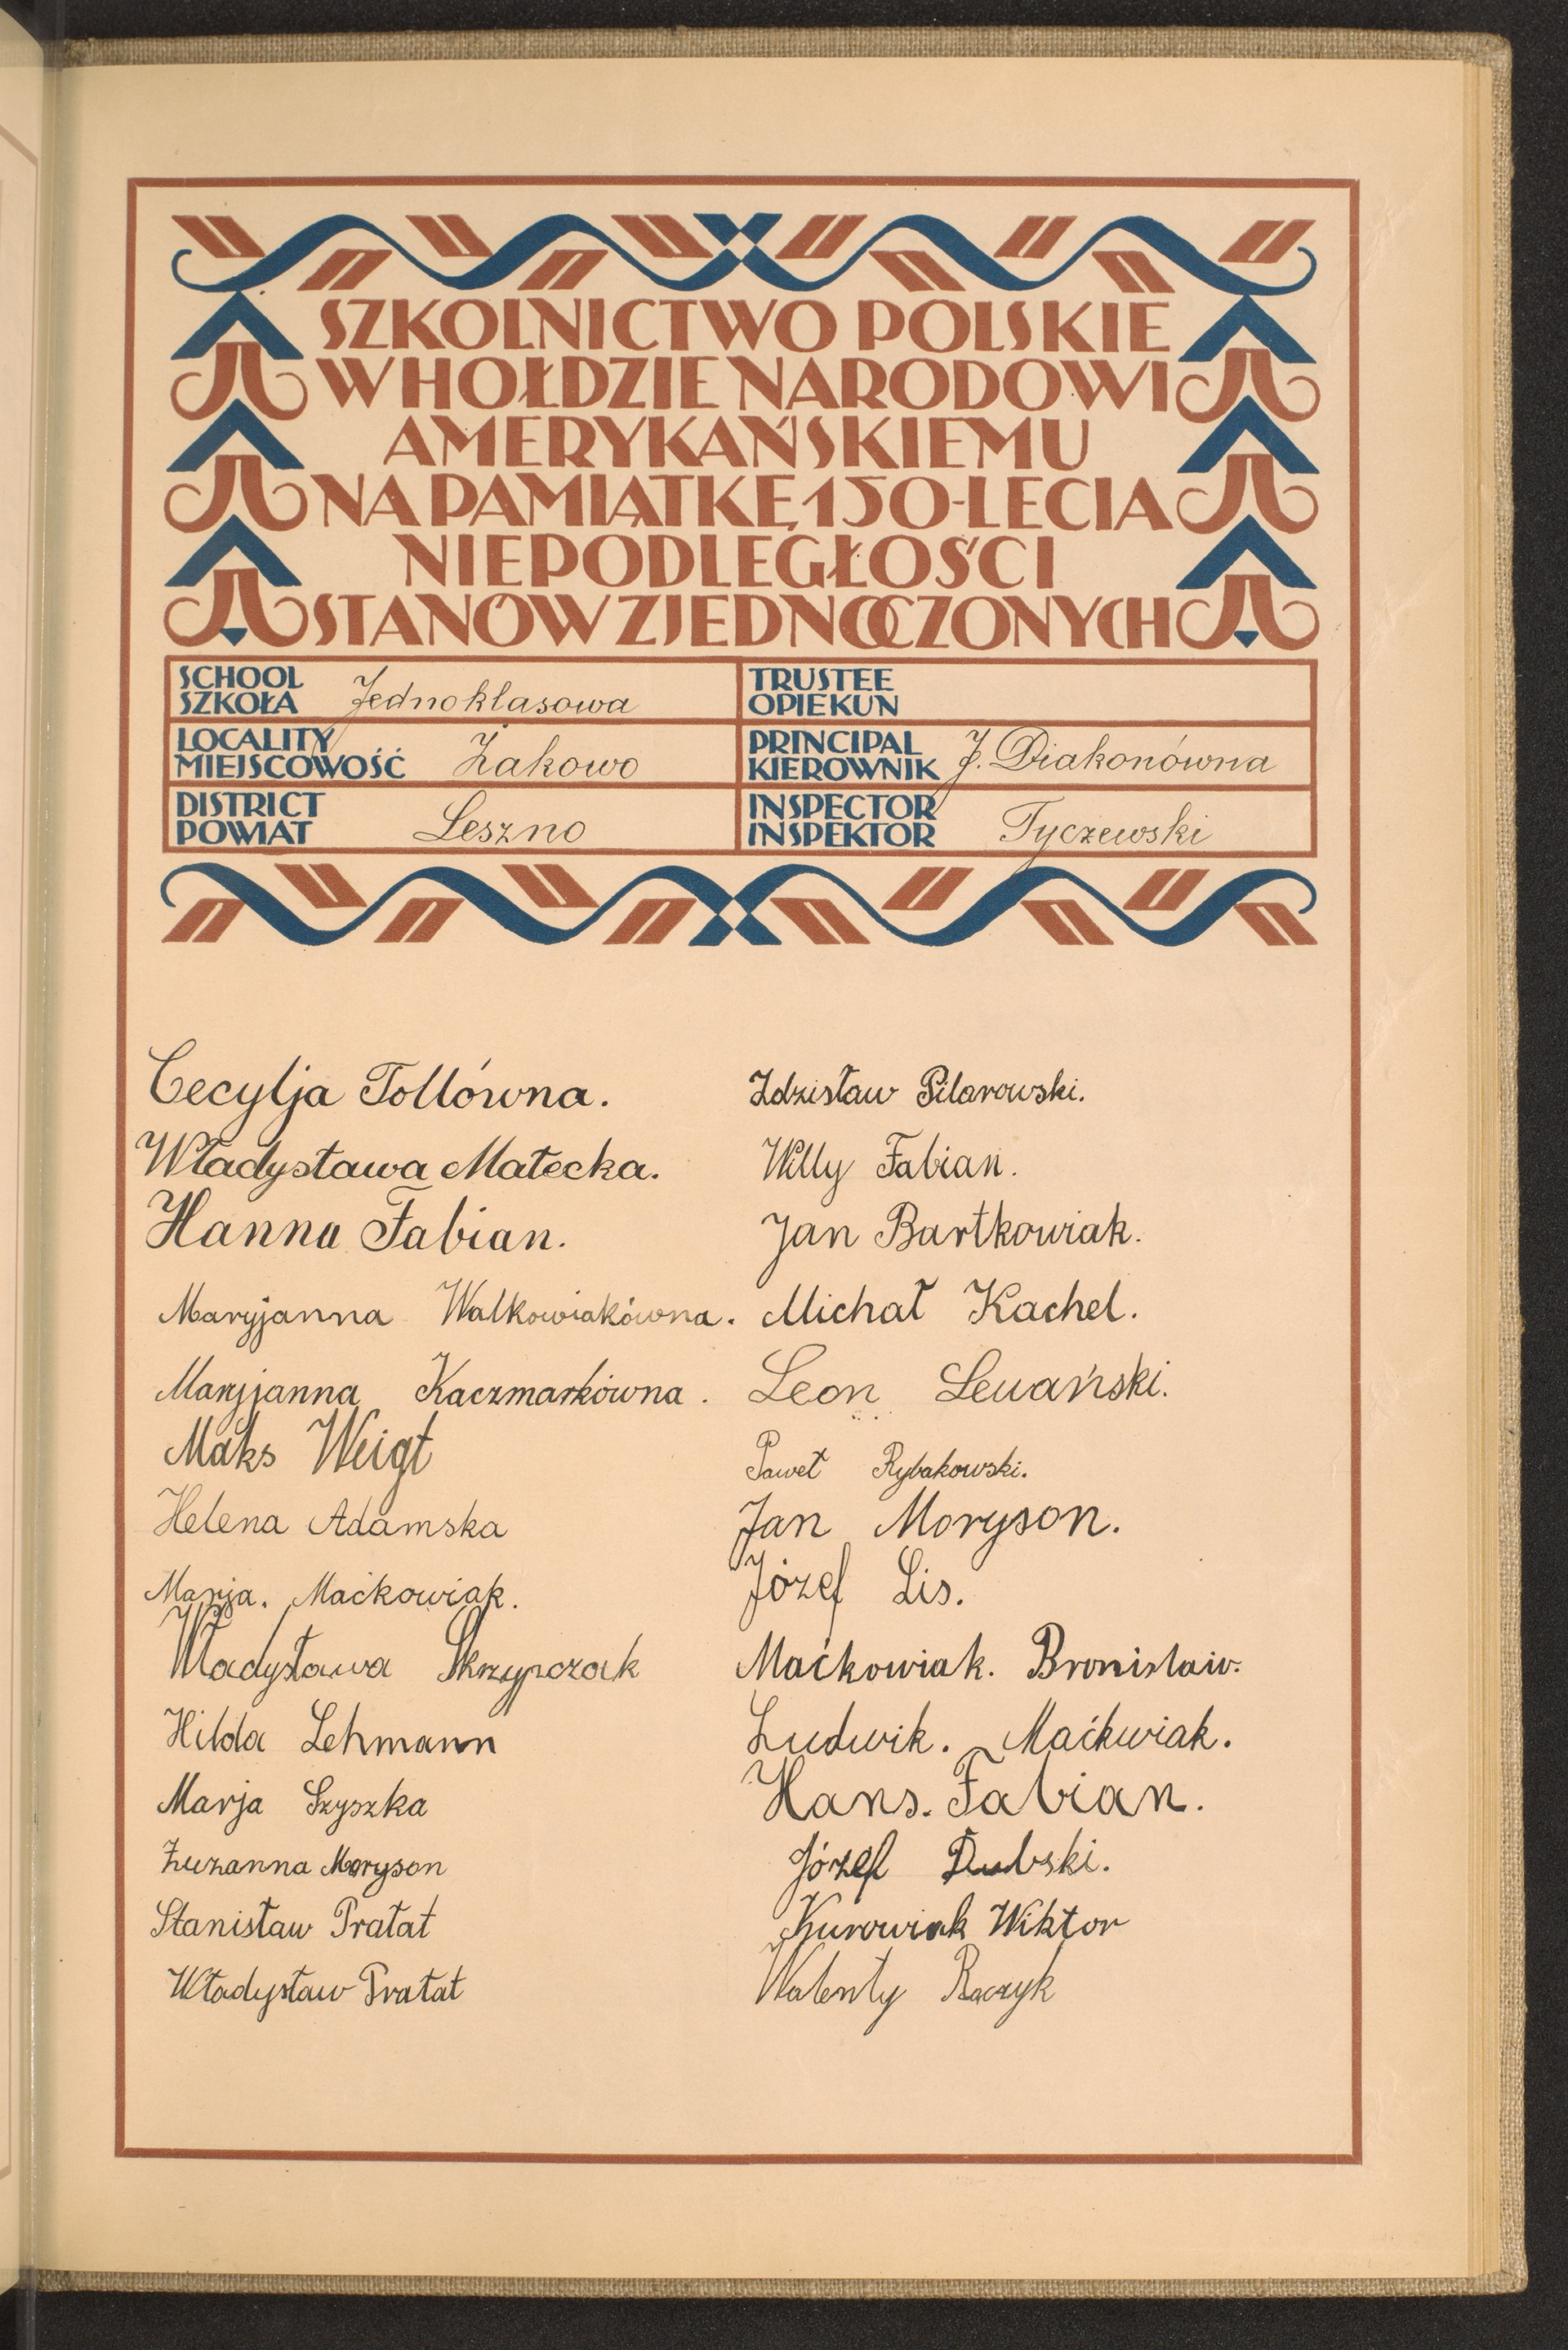 SZKOLNICTWO POLSKIE
W HOŁDZIE NARODOWI
AMERYKAŃSKIEMU
NA PAMIĄTKĘ 150-LECIA
NIEPODLEGŁOŚCI
STANÓW ZJEDNOCZONYCH
SCHOOL
SZKOŁA Jednoklasowa
TRUSTEE
OPIEKUN
LOCALITY
MIEJSCOWOŚĆ Żakowo
PRINCIPAL
KIEROWNIK J. Diakonówna
DISTRICT
POWIAT Leszno
INSPECTOR
INSPEKTOR Tyczewski
Cecylja Tollówna.
Władysława Małecka.
Hanna Fabian.
Maryjanna Walkowiakówna.
Maryjanna Kaczmarkówna.
Maks Weigt
Helena Adamska
Marja. Maćkowiak.
Władysława Skrzypczak
Hilda Lehmann
Marja Szyszka
Zuzanna Moryson
Stanisław Pratat
Władysław Pratat
Zdzisław Pilarowski.
Willy Fabian.
Jan Bartkowiak.
Michał Kachel.
Leon Lewański.
Paweł Rybakowski.
Jan Moryson.
Józef Lis.
Maćkowiak. Bronisław.
Ludwik. Maćkwiak.
Hans. Fabian.
Józef Dubski.
Kurowiak Wiktor
Walenty Raczyk